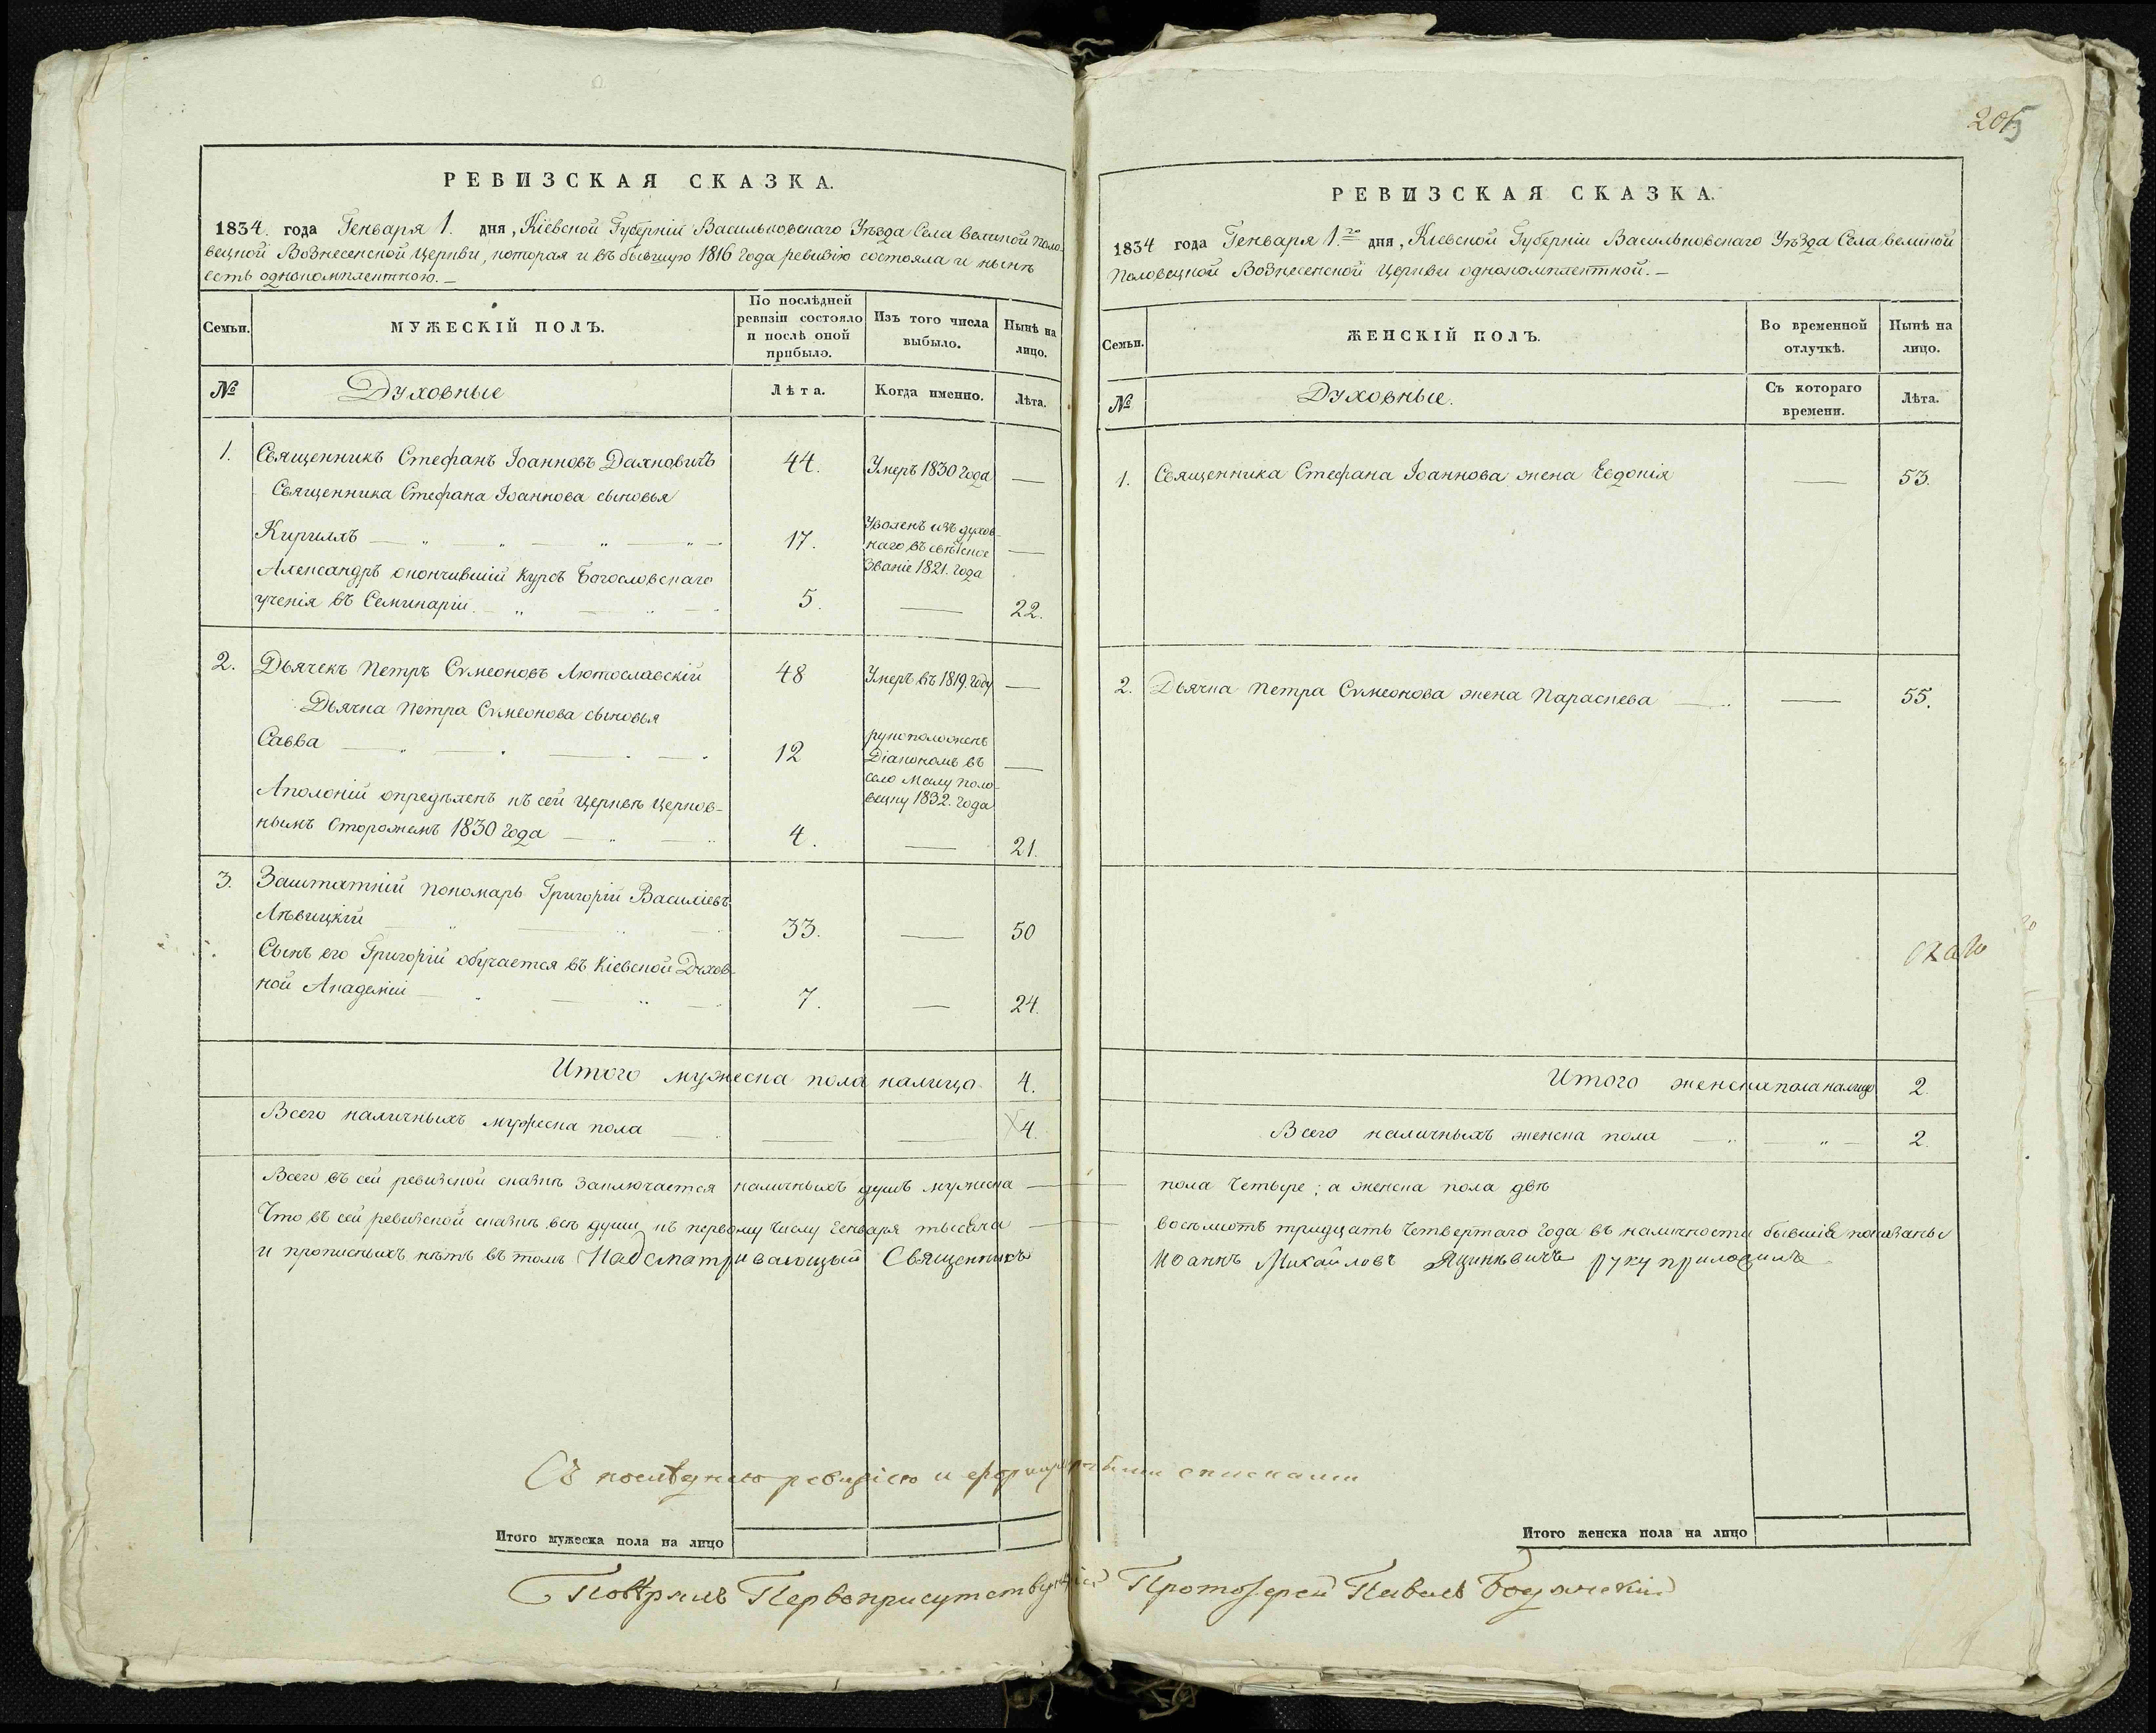 205
РЕВИЗСКАЯ СКАЗКА.
1834. года Генваря 1. дня, Кіевской Губерніи Васильковскаго Уѣзда Села великой Поло-
вецкой Вознесенской Церкви, которая и въ бывшую 1816 года ревизію состояла и нынѣ
есть однокомплектною.—
Семьи.
МУЖЕСКІЙ ПОЛЪ.
По послѣдней
ревизіи состояло
и послѣ оной
прибыло.
Изъ того числа
выбыло.
Нынѣ на
лицо.
№
Духовные
Лѣта.
Когда именно.
Лѣта.
1. Священникъ Стефанъ Іоанновъ Дахновичъ 44. Умеръ 1830 года —
Священника Стефана Іоаннова сыновья
Кириллъ — 17. Уволенъ изъ духов-
наго въ свѣтское —
званіе 1821. года
Александръ окончившій курсъ Богословскаго
ученія въ Семинаріи — 5. — 22.
2. Дьячекъ Петръ Сѵмеоновъ Лютославскій 48 Умеръ въ 1819. году —
Дьячка Петра Сѵмеонова сыновья
Савва — 12 рукоположенъ
Діакономъ въ —
село Малу Поло-
вецку 1832. года
Аполоній опредѣленъ къ сей Церквѣ Церков-
нымъ Сторожемъ 1830 года — 4. — 21.
3. Заштатній Пономарь Григорій Василіевъ
Лѣвицкій 33. — 50
Сынъ его Григорій обучается въ Кіевской Духов-
ной Академіи — 7. — 24.
Итого мужеска пола налицо 4.
Всего наличныхъ мужеска пола — — — 4.
Всего въ сей ревизской сказкѣ заключается наличныхъ душъ мужеска —
Что въ сей ревизской сказкѣ всѣ души, къ первому числу Генваря тысяча —
и прописныхъ нѣтъ въ томъ Надсматривающый Священникъ
Итого мужеска пола на лицо
РЕВИЗСКАЯ СКАЗКА.
1834 года Генваря 1.го дня, Кіевской Губерніи Васильковскаго Уѣзда Села великой
Половецкой Вознесенской Церкви однокомплектной.—
Семьи.
ЖЕНСКІЙ ПОЛЪ.
Во временной
отлучкѣ.
Нынѣ на
лицо.
№
Духовные.
Съ котораго
времени.
Лѣта.
1. Священника Стефана Іоаннова жена Евдокія — 53.
2. Дьячка Петра Сѵмеонова жена Параскева — — 55.
Итого женска пола налицо 2.
Всего наличныхъ женска пола — 2.
пола четыре; а женска пола двѣ
восѣмсотъ тридцать четвертаго года въ наличности бывшіе показаны
Иоаннъ Михайловъ Яцинѣвичъ руку приложилъ
Съ последнею ревизіею и формулярными списками
Итого женска пола на лицо
Повѣрялъ Первоприсутствующій Протоіерей Павелъ